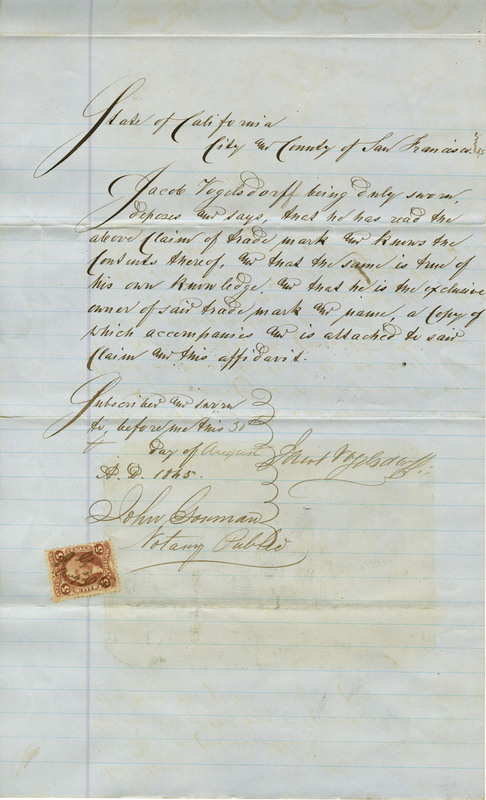 State of California
City and County of San Francisco. ss
Jacob Vogelsdorff being duly sworn,
deposes and says, that he has read the
above Claim of trade mark and knows the
Contents thereof, and that the same is true of
his own knowledge and that he is the exclusive
owner of said trade mark and name, a Copy of
which accompanies and is attached to said
Claim and this affidavit.
Subscribed and sworn
to, before me this 30th
day of August
A. D. 1865.
Jacob Vogelsdorff
John
Notary Public
5 5